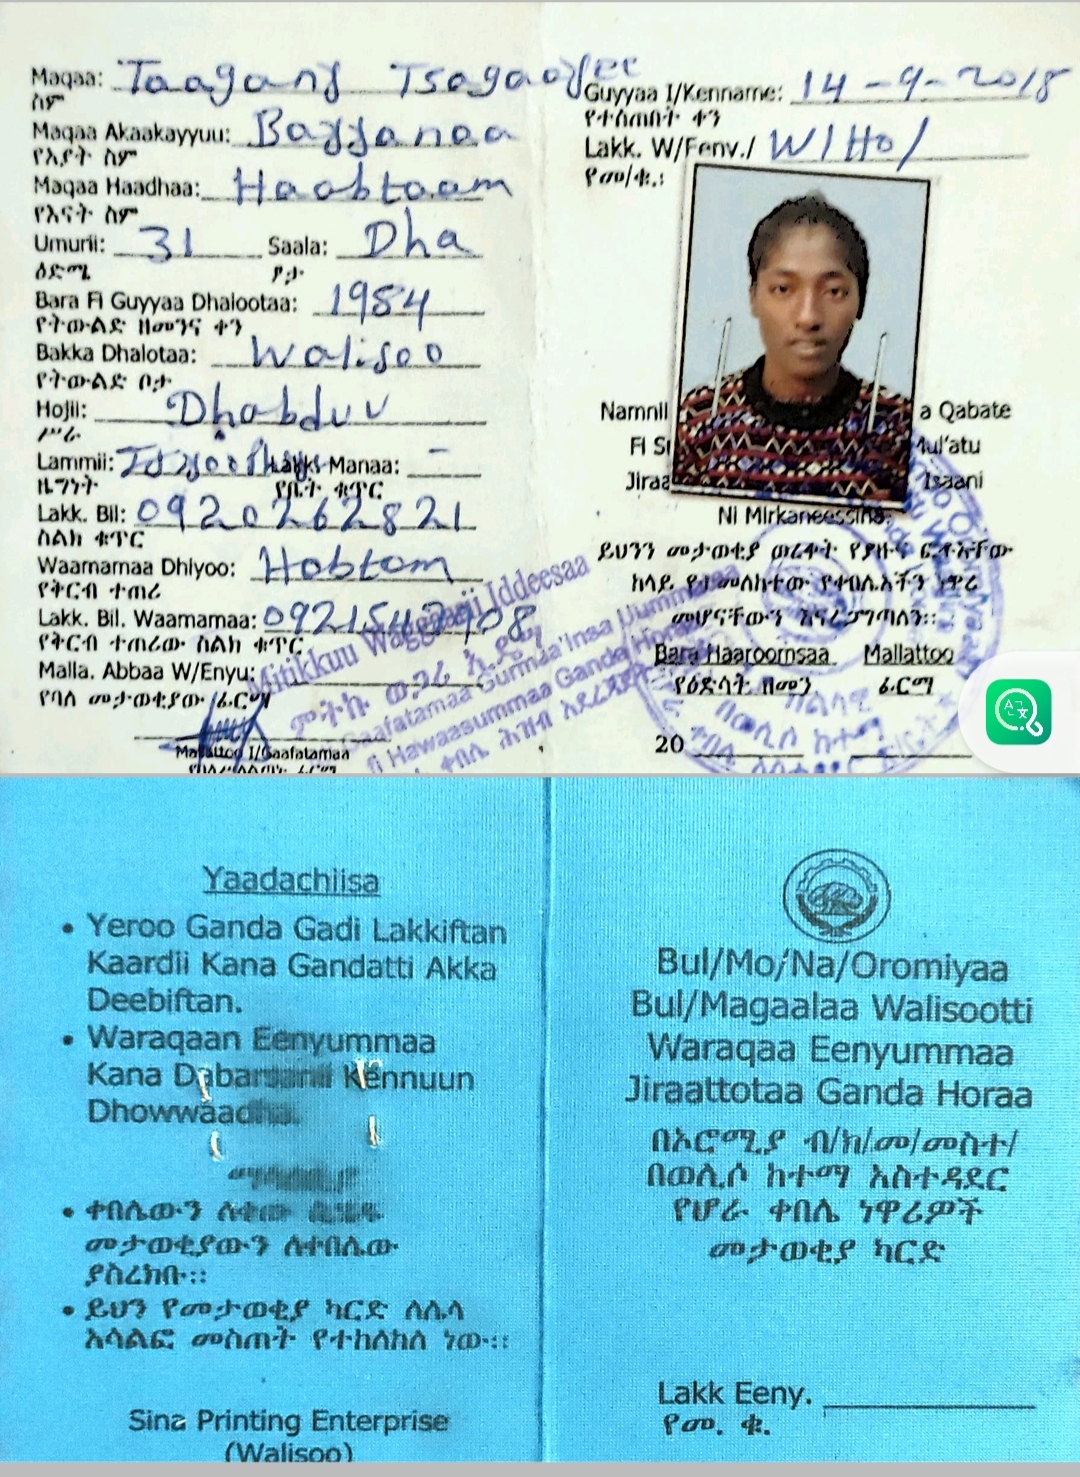 Maqaa: Taaganj
ስም
Maqaa Akaakayyuu: Bayyanaa
የአያት ስም
Maqaa Haadhaa: Haabtaam
የእናት ስም
Umurii: 31 Saala: Dha
ዕድሜ ፆታ
Bara Fi Guyyaa Dhalootaa: 1984
የትውልድ ዘመንና ቀን
Bakka Dhalotaa: Walisoo
የትውልድ ቦታ
Hojii: Dhabduu
ሥራ
Lammii: Lakk. Manaa: -
ዜግነት የቤት ቁጥር
Lakk. Bil: 0920262821
ስልክ ቁጥር
Waamamaa Dhiyoo: Habtam
የቅርብ ተጠሪ
Lakk. Bil. Waamamaa:
የቅርብ ተጠሪው ስልክ ቁጥር
Malla. Abbaa W/Enyu:
የባለ መታወቂያው ፊርማ
Mallattoo I/Gaafatamaa
Mitikkuu Waggaarii Iddeesaa
Guyyaa I/Kenname: 14-9-2018
የተሰጠበት ቀን
Lakk. W/Eenv./ W/Ho/
የመ/ቁ.:
Namni a Qabate
Mul'atu
Isaani
Ni Mirkaneessina.
ይህንን መታወቂያ ወረቀት የያዙና ፎቶአቸው
ከላይ የተመለከተው የቀበሌአችን ነዋሪ
መሆናቸውን እናረጋግጣለን::
Bara Haaroomsaa Mallattoo
የዕድሳት ዘመን ፊርማ
20
Yaadachiisa
• Yeroo Ganda Gadi Lakkiftan
Kaardii Kana Gandatti Akka
Deebiftan.
• Waraqaan Eenyummaa
Kana Dabarsanii Kennuun
Dhowwaadha.
• ቀበሌውን ለቀው
መታወቂያውን ለቀበሌው
ያስረክቡ::
• ይህን የመታወቂያ ካርድ ለሌላ
አሳልፎ መስጠት የተከለከለ ነው::
Sina Printing Enterprise
(Walisoo)
Bul/Mo/Na/Oromiyaa
Bul/Magaalaa Walisootti
Waraqaa Eenyummaa
Jiraattotaa Ganda Horaa
በኦሮሚያ ብ/ክ/መ/መስተ/
በወሊሶ ከተማ አስተዳደር
የሆራ ቀበሌ ነዋሪዎች
መታወቂያ ካርድ
Lakk Eeny.
የመ. ቁ.